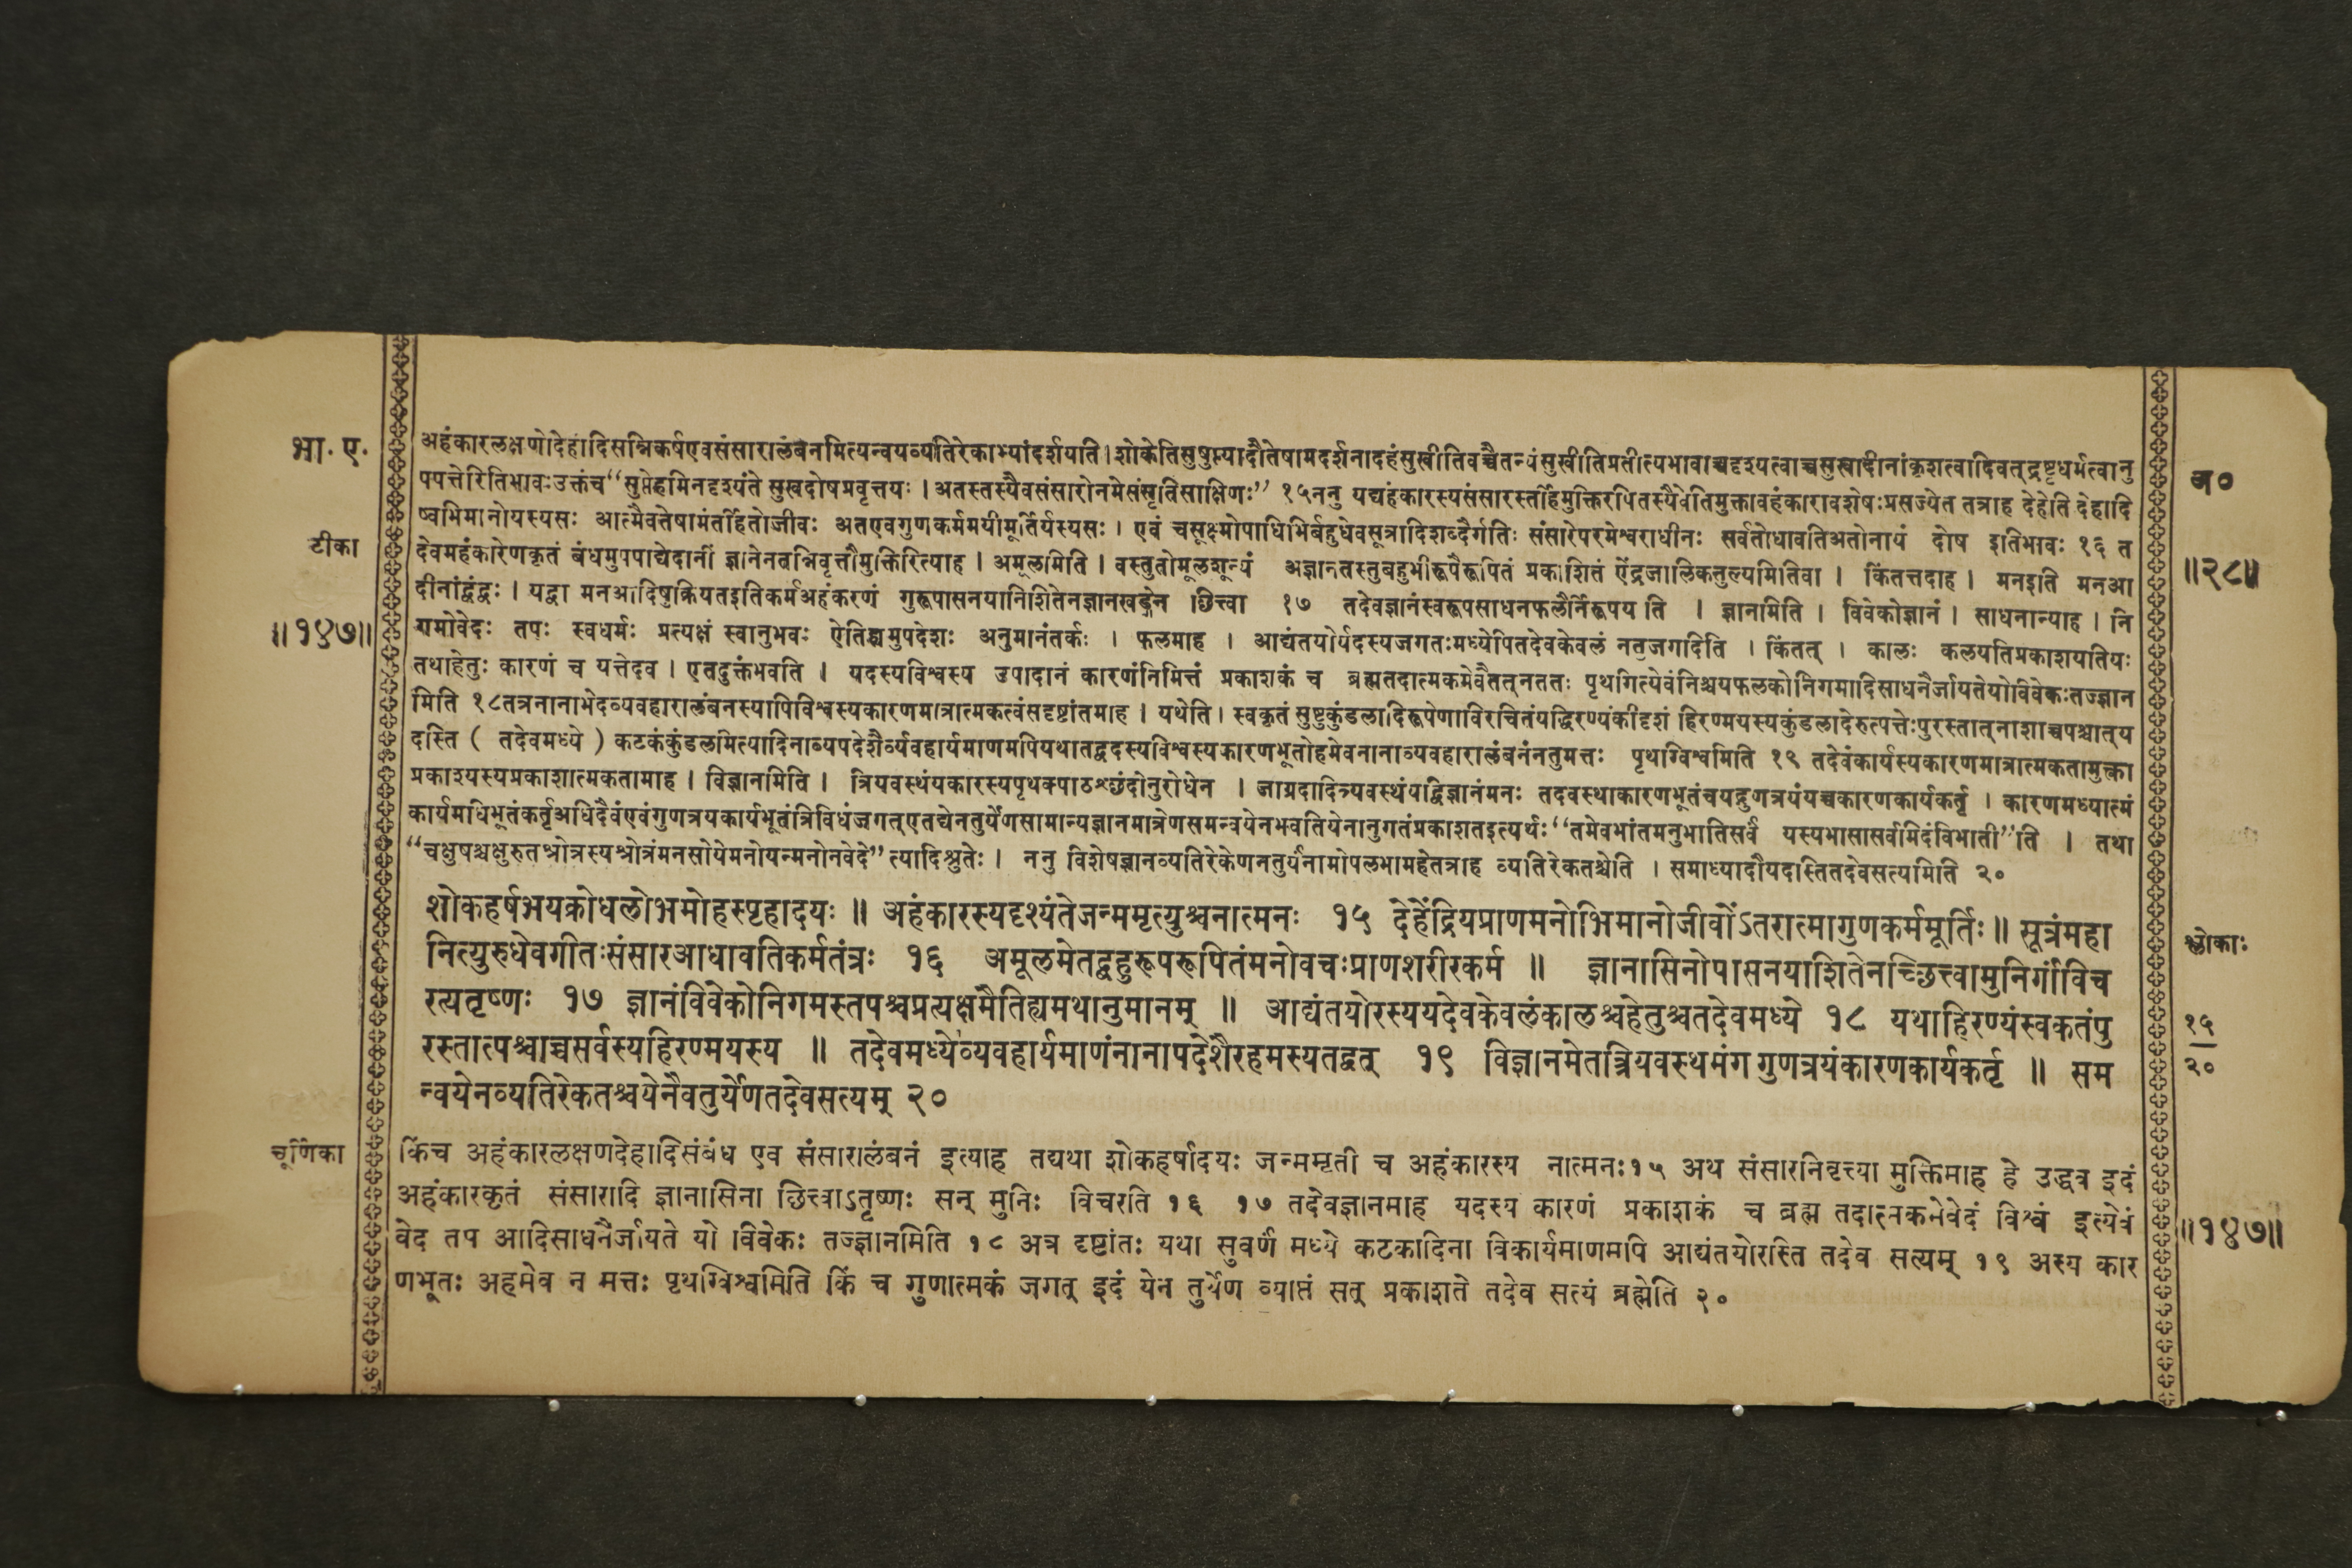 भा. ए.
टीका
॥१४७॥
अहंकारलक्षणोदेहादिसन्निकर्षएवसंसारालंबनमित्यन्वयव्यतिरेकाभ्यांदर्शयति। शोकेतिसुषुप्त्यादौतेषामदर्शनादहंसुखीतिवच्चैतन्यंसुखीतिप्रतीत्यभावाच्चदृश्यत्वाच्चसुखादीनांकृशत्वादिवत्द्रष्टृधर्मत्वानु
पपत्तेरितिभावःउक्तंच“सुप्तेहमिनदृश्यंते सुखदोषप्रवृत्तयः । अतस्तस्यैवसंसारोनमेसंसृतिसाक्षिणः” १५ननु यद्यहंकारस्यसंसारस्तर्हिमुक्तिरपितस्यैवेतिमुक्तावहंकारावशेषःप्रसज्येत तत्राह देहेति देहादि
ष्वभिमानोयस्यसः आत्मैवतेषामंतर्हितोजीवः अतएवगुणकर्ममयीमूर्तिर्यस्यसः । एवं चसूक्ष्मोपाधिभिर्बहुधेवसूत्रादिशब्दैर्गतिः संसारेपरमेश्वराधीनः सर्वतोधावतिअतोनायं दोष इतिभावः १६ त
देवमहंकारेणकृतं बंधमुपपाद्येदानीं ज्ञानेनतन्निवृत्तौमुक्तिरित्याह । अमूलमिति । वस्तुतोमूलशून्यं अज्ञानतस्तुबहुभीरूपैरूपितं प्रकाशितं ऐंद्रजालिकतुल्यमितिवा । किंतत्तदाह । मनइति मनआ
दीनांद्वंद्वः । यद्वा मनआदिषुक्रियतइतिकर्मअहंकरणं गुरूपासनयानिशितेनज्ञानखड्गेन छित्त्वा १७ तदेवज्ञानंस्वरूपसाधनफलैर्निरूपयति । ज्ञानमिति । विवेकोज्ञानं । साधनान्याह । नि
गमोवेदः तपः स्वधर्मः प्रत्यक्षं स्वानुभवः ऐतिह्यमुपदेशः अनुमानंतर्कः । फलमाह । आद्यंतयोर्यदस्यजगतःमध्येपितदेवकेवलं नतुजगदिति । किंतत् । कालः कलयतिप्रकाशयतियः
तथाहेतुः कारणं च यत्तेदव । एतदुक्तंभवति । यदस्यविश्वस्य उपादानं कारणंनिमित्तं प्रकाशकं च ब्रह्मतदात्मकमेवैतत्नततः पृथगित्येवंनिश्चयफलकोनिगमादिसाधनैर्जायतेयोविवेकःतज्ज्ञान
मिति १८तत्रनानाभेदव्यवहारालंबनस्यापिविश्वस्यकारणमात्रात्मकत्वंसदृष्टांतमाह । यथेति । स्वकृतं सुष्टुकुंडलादिरूपेणाविरचितंयद्धिरण्यंकीदृशं हिरण्मयस्यकुंडलादेरुत्पत्तेःपुरस्तात्नाशाच्चपश्चात्य
दस्ति ( तदेवमध्ये ) कटकंकुंडलमित्यादिनाव्यपदेशैर्व्यवहार्यमाणमपियथातद्वदस्यविश्वस्यकारणभूतोहमेवनानाव्यवहारालंबनंनतुमत्तः पृथग्विश्वमिति १९ तदेवंकार्यस्यकारणमात्रात्मकतामुक्त्वा
प्रकाश्यस्यप्रकाशात्मकतामाह । विज्ञानमिति । त्रियवस्थंयकारस्यपृथक्पाठश्छंदोनुरोधेन । जाग्रदादित्र्यवस्थंयद्विज्ञानंमनः तदवस्थाकारणभूतंचयद्गुणत्रयंयच्चकारणकार्यकर्तृ । कारणमध्यात्मं
कार्यमधिभूतंकर्तृअधिदैवंएवंगुणत्रयकार्यभूतंत्रिविधंजगत्एतद्येनतुर्येणसामान्यज्ञानमात्रेणसमन्वयेनभवतियेनानुगतंप्रकाशतइत्यर्थः“तमेवभांतमनुभातिसर्वं यस्यभासासर्वमिदंविभाती”ति । तथा
“चक्षुषश्चक्षुरुतश्रोत्रस्यश्रोत्रंमनसोयेमनोयन्मनोनवेदे”त्यादिश्रुतेः । ननु विशेषज्ञानव्यतिरेकेणनतुर्यंनामोपलभामहेतत्राह व्यतिरेकतश्चेति । समाध्यादौयदस्तितदेवसत्यमिति २०
शोकहर्षभयक्रोधलोभमोहस्पृहादयः ॥ अहंकारस्यदृश्यंतेजन्ममृत्युश्चनात्मनः १५ देहेंद्रियप्राणमनोभिमानोजीवोंऽतरात्मागुणकर्ममूर्तिः ॥ सूत्रंमहा
नित्युरुधेवगीतःसंसारआधावतिकर्मतंत्रः १६ अमूलमेतद्बहुरूपरूपितंमनोवचःप्राणशरीरकर्म ॥ ज्ञानासिनोपासनयाशितेनच्छित्त्वामुनिर्गांविच
रत्यतृष्णः १७ ज्ञानंविवेकोनिगमस्तपश्चप्रत्यक्षमैतिह्यमथानुमानम् ॥ आद्यंतयोरस्ययदेवकेवलंकालश्चहेतुश्चतदेवमध्ये १८ यथाहिरण्यंस्वकतंपु
रस्तात्पश्चाच्चसर्वस्यहिरण्मयस्य ॥ तदेवमध्येव्यवहार्यमाणंनानापदेशैरहमस्यतद्वत् १९ विज्ञानमेतत्रियवस्थमंग गुणत्रयंकारणकार्यकर्तृ ॥ सम
न्वयेनव्यतिरेकतश्चयेनैवतुर्येणतदेवसत्यम् २०
चूर्णिका
किंच अहंकारलक्षणदेहादिसंबंध एव संसारालंबनं इत्याह तद्यथा शोकहर्षादयः जन्ममृती च अहंकारस्य नात्मनः१५ अथ संसारनिवृत्त्या मुक्तिमाह हे उद्धव इदं
अहंकारकृतं संसारादि ज्ञानासिना छित्त्वाऽतृष्णः सन् मुनिः विचरति १६ १७ तदेवज्ञानमाह यदस्य कारणं प्रकाशकं च ब्रह्म तदात्मकमेवेदं विश्वं इत्येवं
वेद तप आदिसाधनैर्जायते यो विवेकः तज्ज्ञानमिति १८ अत्र दृष्टांतः यथा सुवर्णं मध्ये कटकादिना विकार्यमाणमपि आद्यंतयोरस्ति तदेव सत्यम् १९ अस्य कार
णभूतः अहमेव न मत्तः पृथग्विश्वमिति किं च गुणात्मकं जगत् इदं येन तुर्येण व्याप्तं सत् प्रकाशते तदेव सत्यं ब्रह्मेति २०
अ०
॥२८॥
श्लोकाः
१५
२०
॥१४७॥